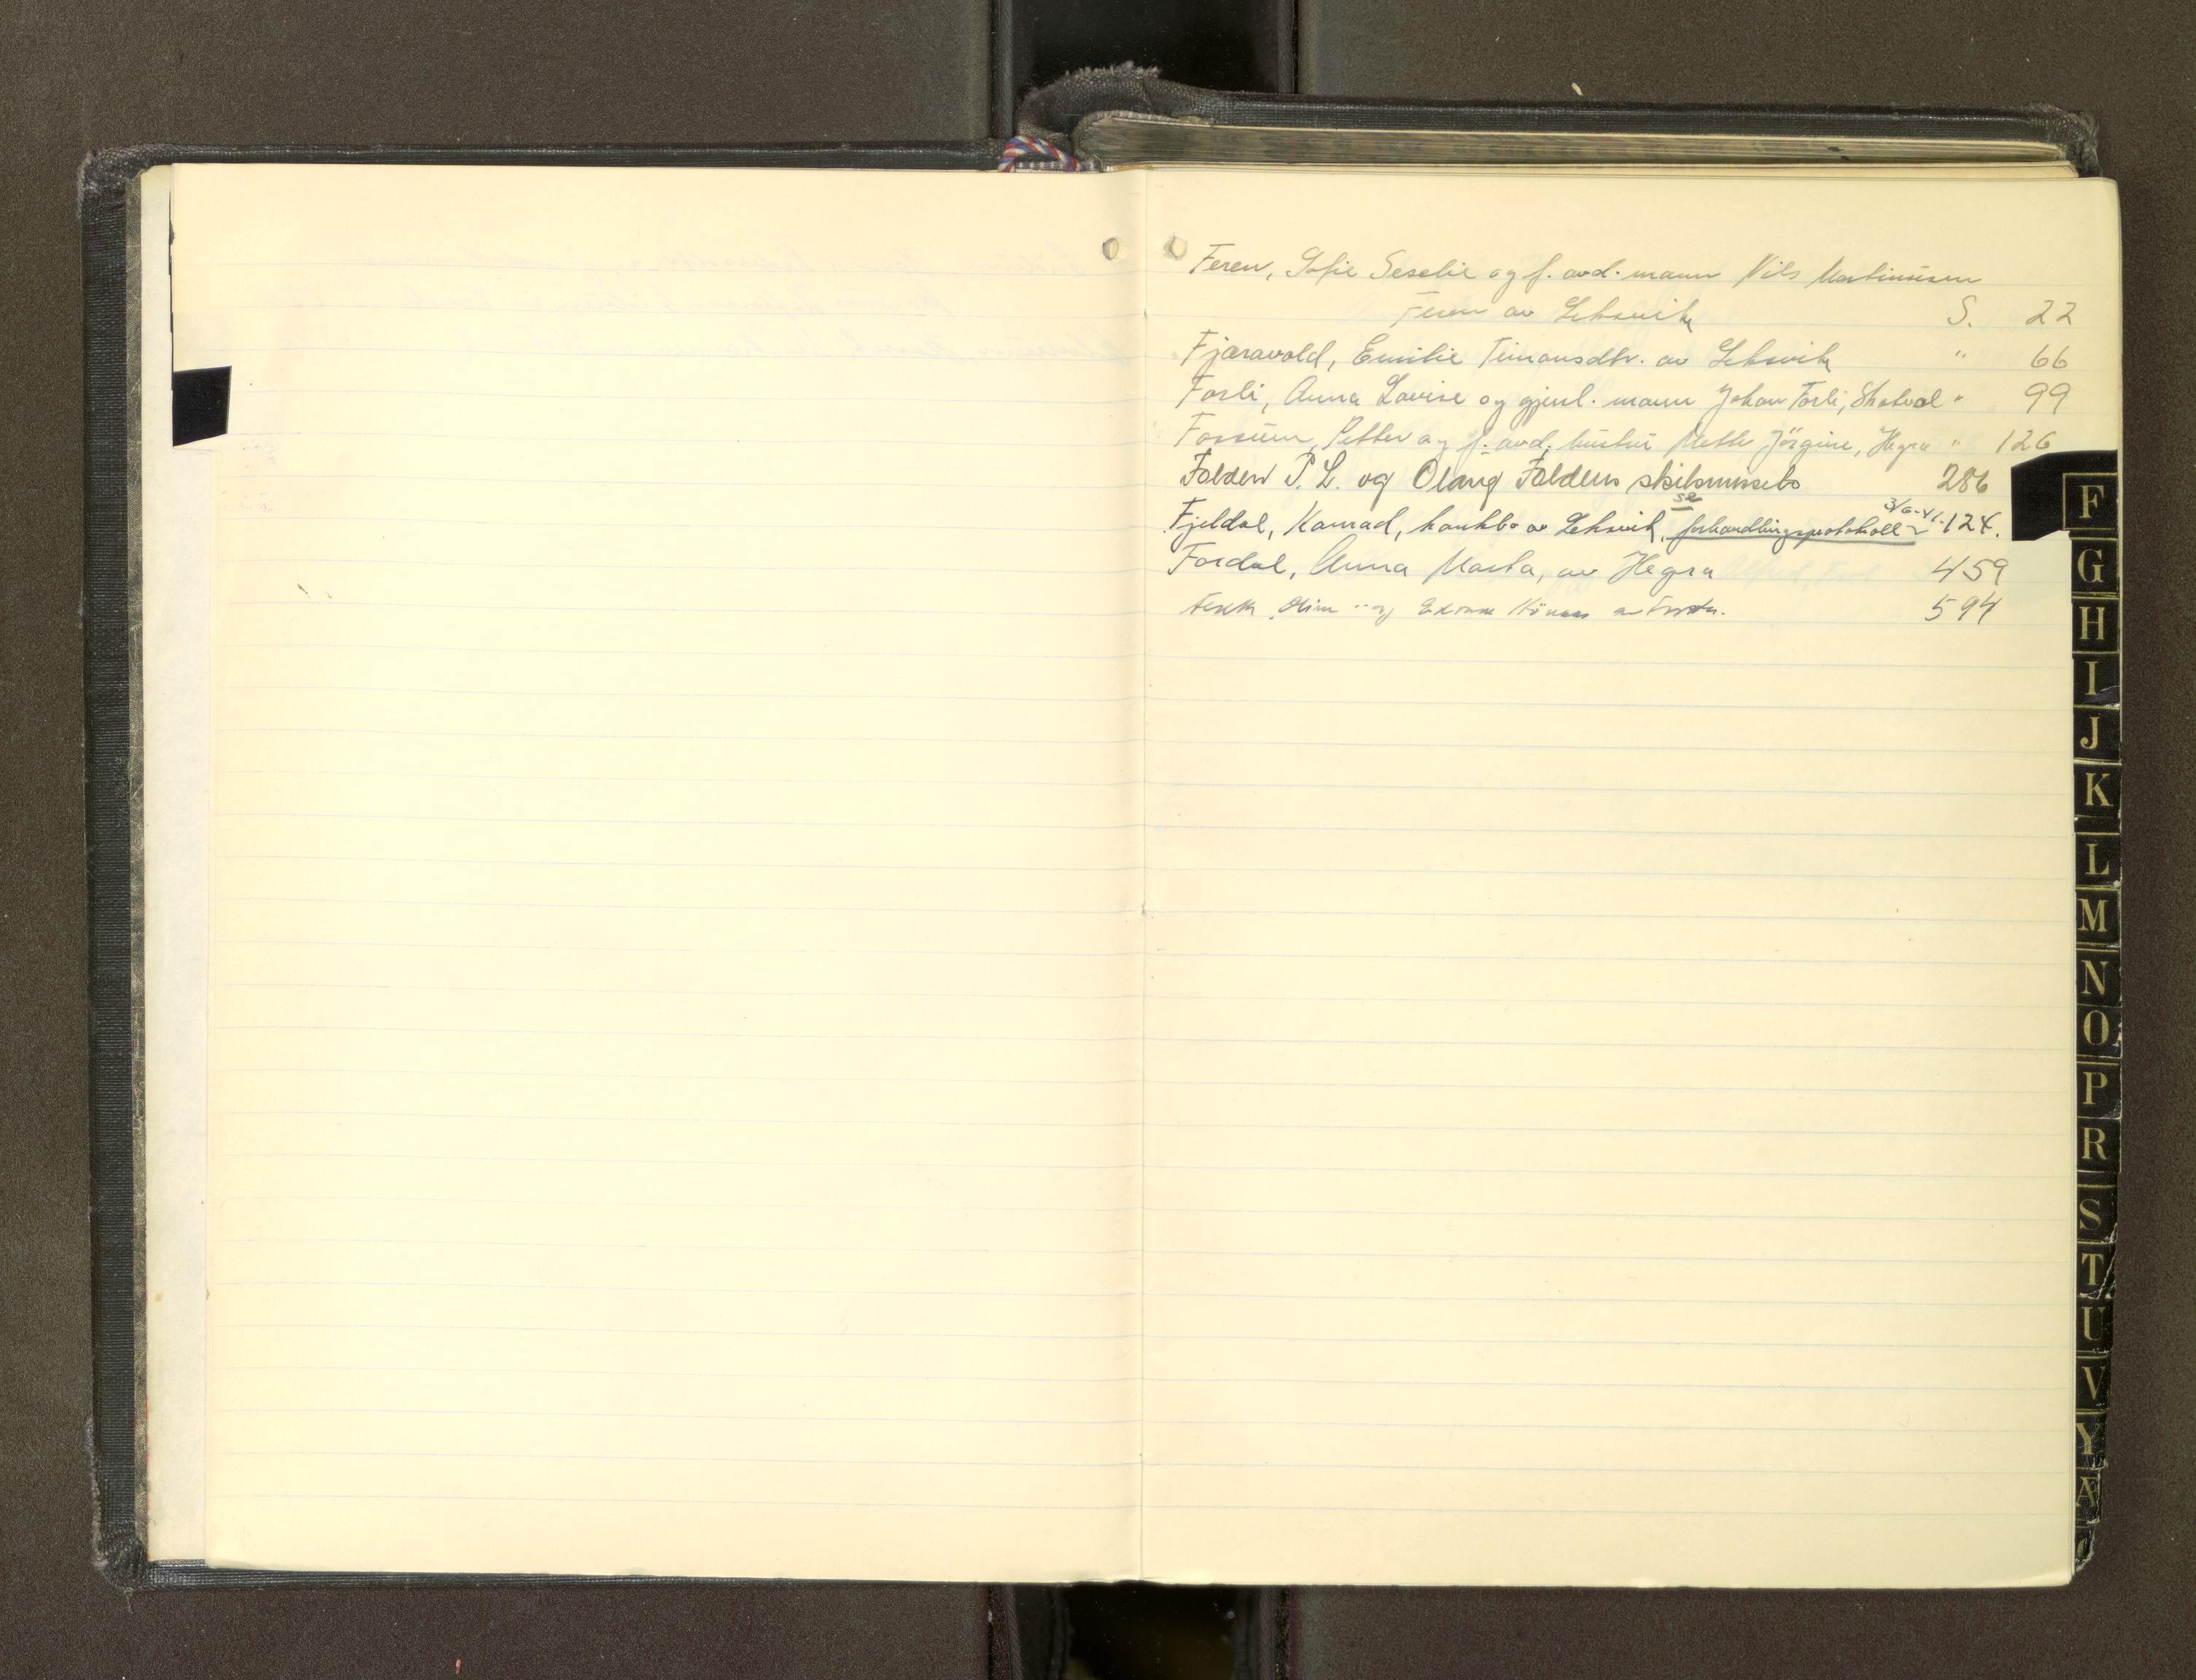 Feren, Sofie Seselie og f. avd. mann Nils Martinusen
Feren av Leksvik S. 22
Fjæravold, Emilie Timansdtr. av Leksvik " 66
Forli, Anna Lovise og gjenl. mann Johan Forli, Skatval " 99
Fossum, Petter og f. avd. hustru Mette Jørgine, Hegra " 126
Folden P. L. og Olaug Foldens skilsmissebo 286
Fjeldal, Konrad, konkbo av Leksvik, se forhandlingsprotokoll 3/6-41. 124.
Fordal, Anna Marta, av Hegra 459
og 594
F
G
H
I
J
K
L
M
N
O
P
R
S
T
U
V
Y
Æ